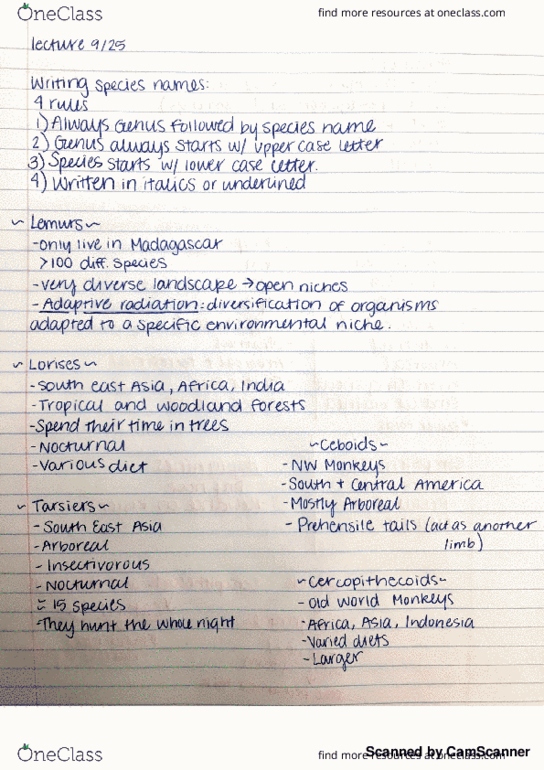 OneClass
find more resources at oneclass.com
lecture 9/25
Writing species names:
4 rules
1) Always Genus followed by species name
2) Genus always starts w/ upper case letter
3) Species starts w/ lower case letter.
4) Written in italics or underlined
~ Lemurs ~
-only live in Madagascar
>100 diff. species
-very diverse landscape → open niches
- Adaptive radiation: diversification of organisms
adapted to a specific environmental niche.
~ Lorises ~
-South east Asia, Africa, India
-Tropical and woodland forests
-Spend their time in trees
-Nocturnal
-Various diet
~ Tarsiers ~
- South East Asia
-Arboreal
- Insectivorous
- Nocturnal
≈ 15 species
-They hunt the whole night
~Ceboids~
- NW Monkeys
-South + Central America
-Mostly Arboreal
- Prehensile tails (act as another
limb)
~Cercopithecoids~
- Old World Monkeys
-Africa, Asia, Indonesia
-Varied diets
- Larger
OneClass
find more resources at oneclass.com
Scanned by CamScanner